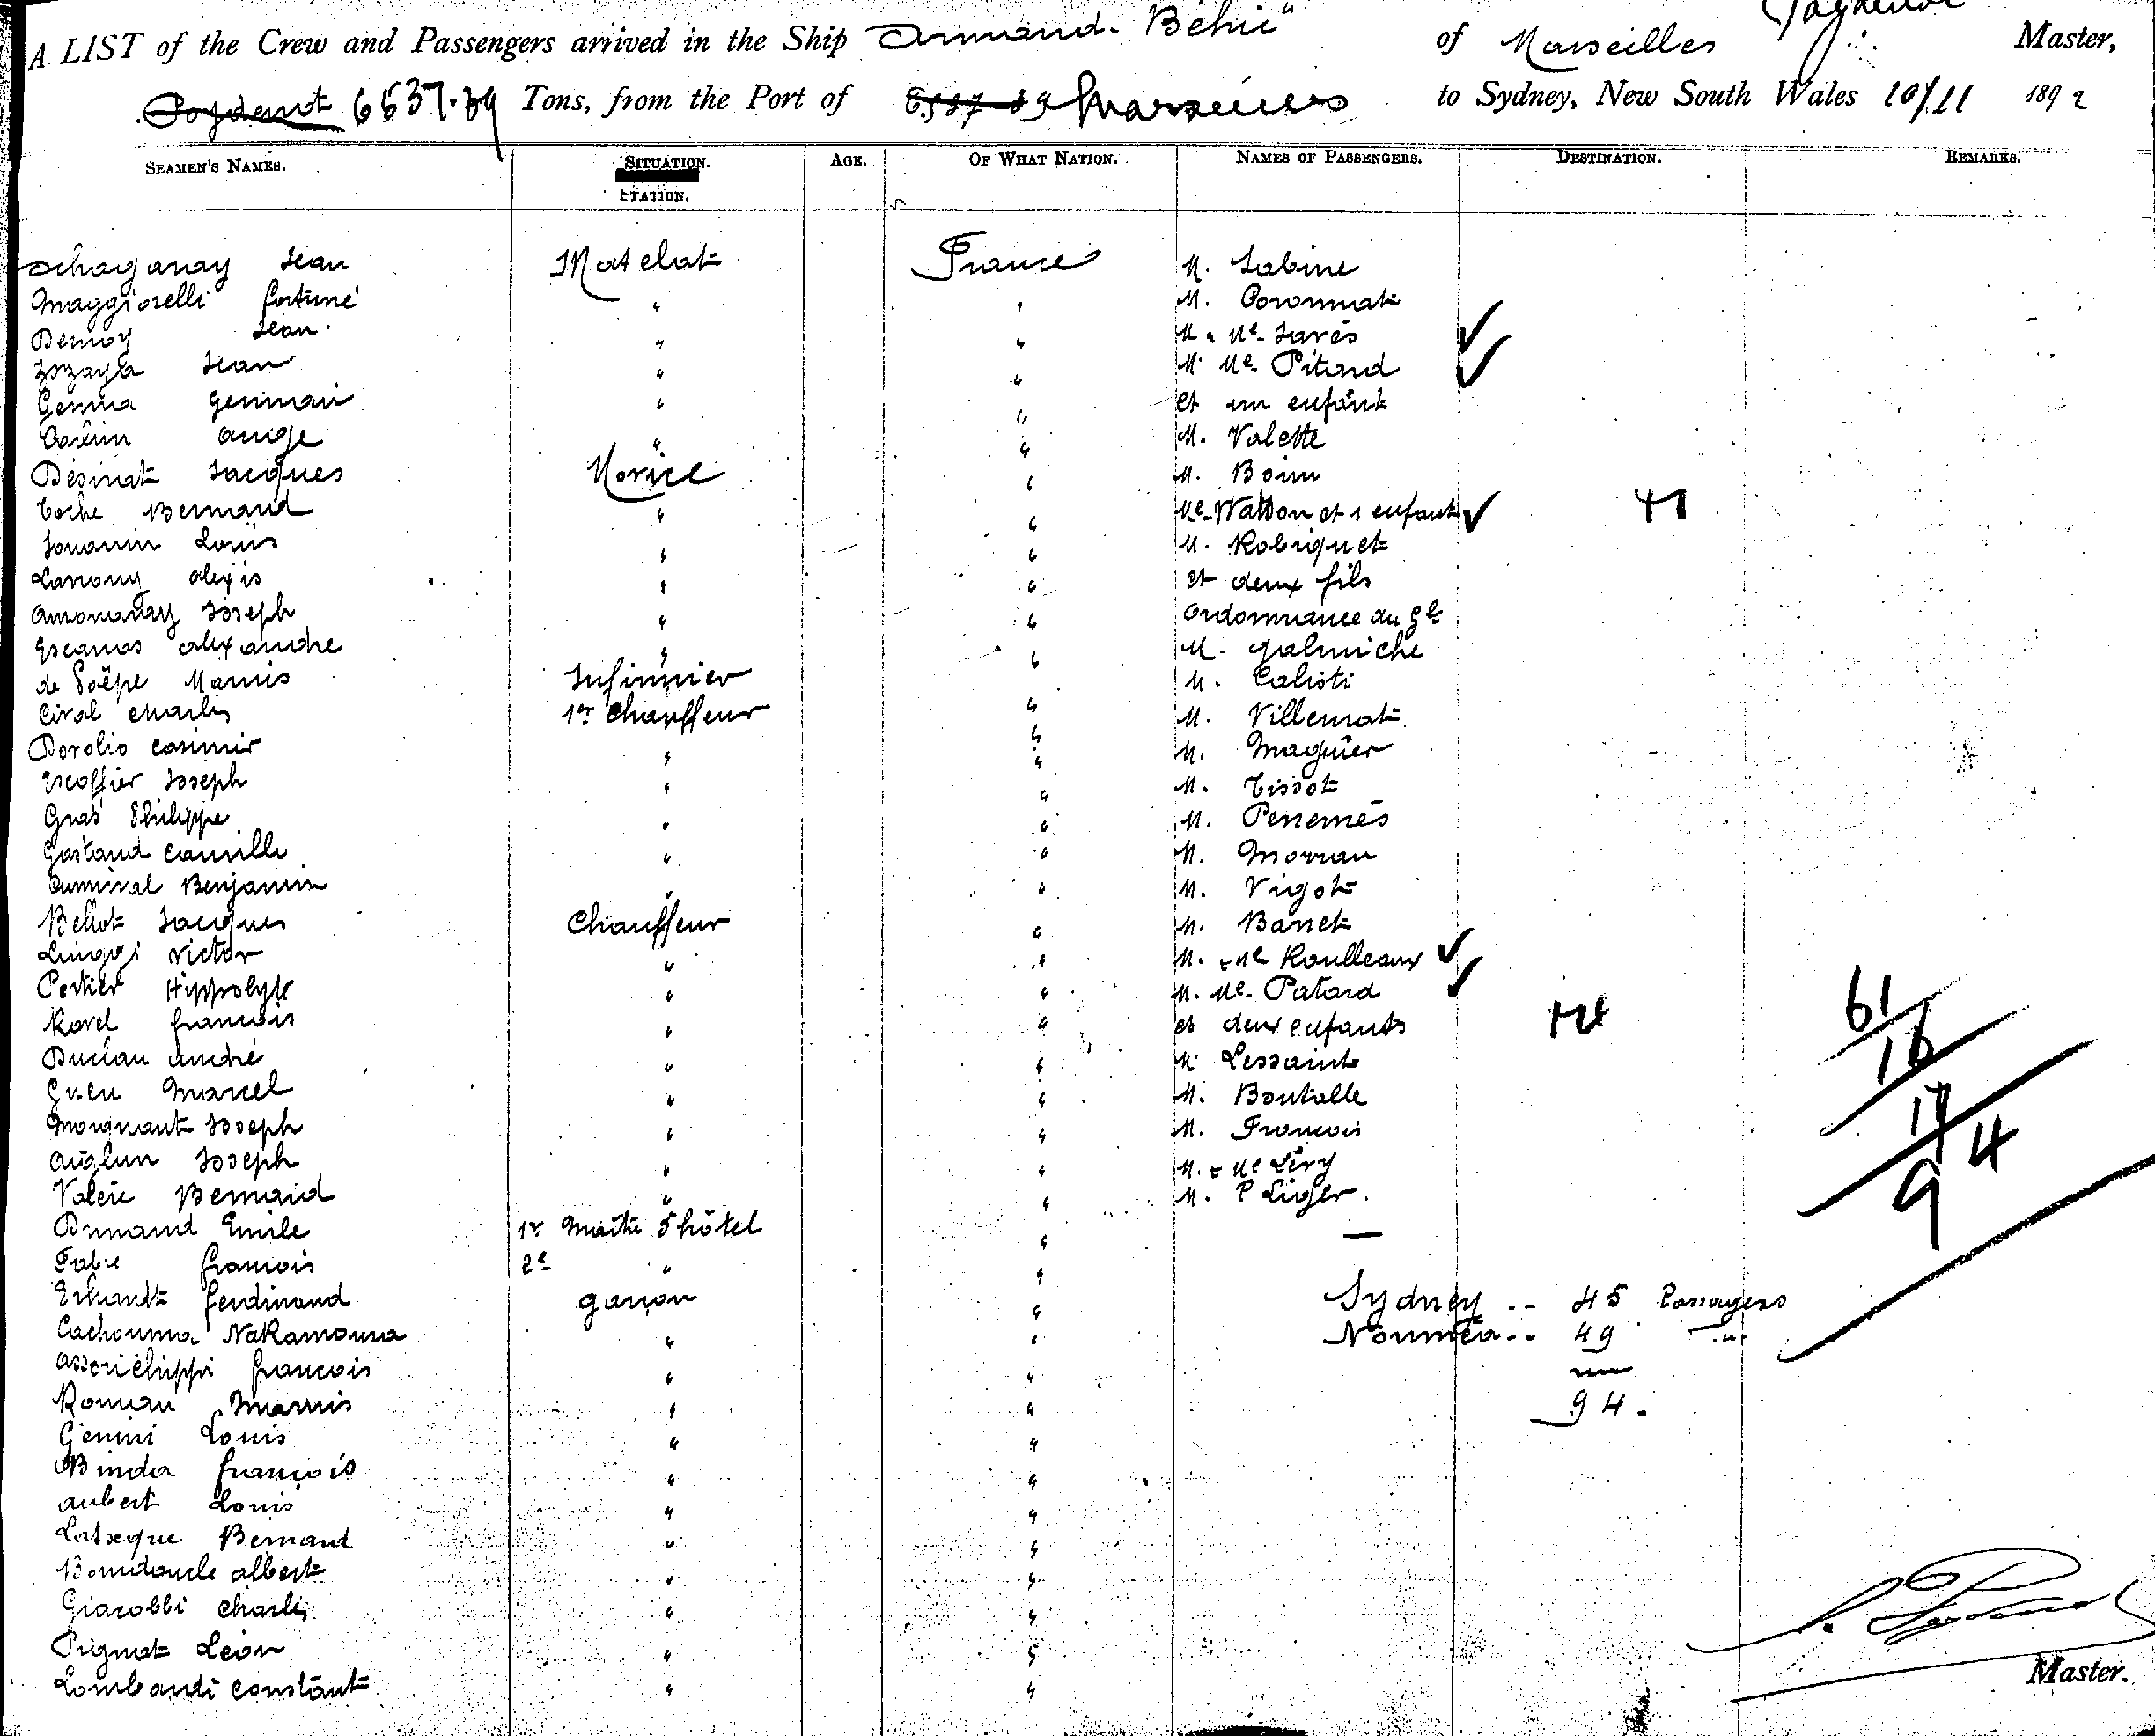 A LIST of the Crew and Passengers arrived in the Ship Armand. Béhic" of Marseilles Master,
6537.39 Tons, from the Port of Marseilles to Sydney, New South Wales 10/11 1892
SEAMEN'S NAMES. SITUATION. STATION. AGE. OF WHAT NATION. NAMES OF PASSENGERS. DESTINATION. REMARKS.
Jean Matelot France M. Sabine
Maggiorelli fortuné " " M.
Jean " " M. Me Sarès
Jean " " M. Me Pitard
germain " " et un enfant
ange " " M. Valette
Désirat Jacques Novice " M. Boin
Coche Bernard " " Me Watson et 1 enfant 41
Jouanin Louis " " M. Robiquet
Alexis " " et deux fils
Joseph " " Ordonnance du Gl
Escanas alexandre " " M. Galmiche
de Marius Infirmier " M. Calisti
Cival Charles 1er Chauffeur " M. Villemot
Casimir " " M. Magnier
Escoffier Joseph " " M. Tissot
Gras Philippe " " M. Penemès
Gastaud Camille " " M. Morran
Duminal Benjamin " " M. Vigot
Bellot Jacques Chauffeur " M. Banet
Linggi Victor " " M. Me Roulleaux
Pertier Hippolyte " " M. Me Patard
Ravel francois " " et deux enfants
Duclau André " " M. Lessaint
Gueu Marcel " " M. Boutolle
Joseph " " M. Francois
Auglun Joseph " " M. Me Levy
Valère Bernard " " M. P Liger.
Armand Emile 1er Maitre d'hôtel "
Fabre francois 2e " "
ferdinand garçon " Sydney -- 45 Passagers
Cachouma Nakamoura " " Nouméa -- 49 "
francois " " 94.
Roman Marius " "
Gemini Louis " "
Binda francois " "
Aubert Louis " "
Latseque Bernard " "
albert " "
Giacobbi Charles " "
Pignot Léon " "
Lombardi constant " "
61
16
17
4
9
Master.